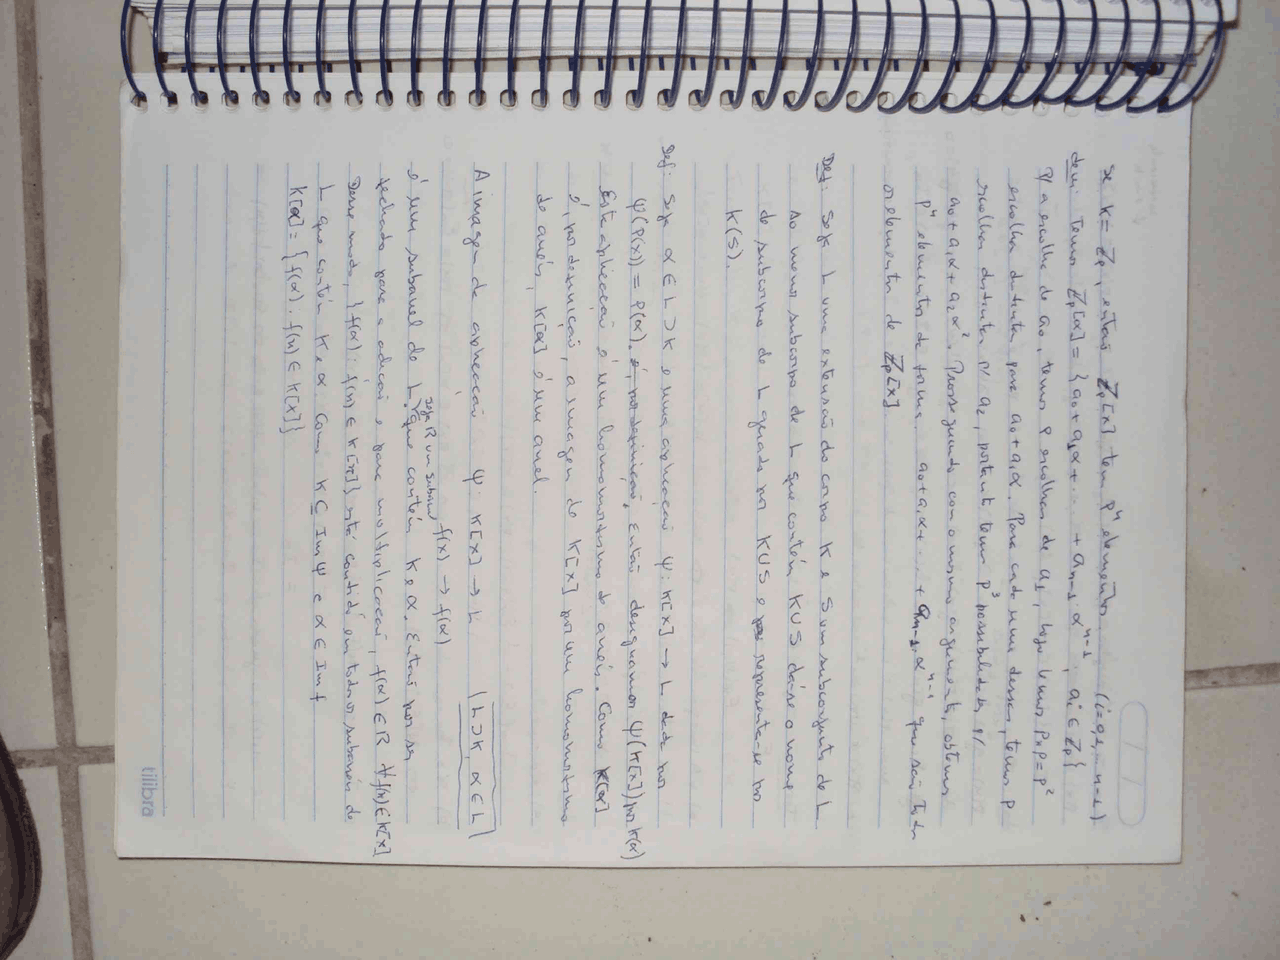 se K = Zp, então Zp[x] tem pⁿ elementos. (i=0,1,… n-1)
dem: Temos Zp[α] = { a₀ + a₁α + … + aₙ₋₁ αⁿ⁻¹, aᵢ ∈ Zp }
P/ a escolha de a₀, temos p escolhas de a₁, logo temos p×p = p²
escolhas distintas para a₀ + a₁α. Para cada uma dessas, temos p
escolhas distintas p/ a₂, portanto temos p³ possibilidades p/
a₀ + a₁α + a₂α². Prosseguindo com o mesmo argumento, obtemos
pⁿ elementos da forma a₀ + a₁α + … + aₙ₋₁ αⁿ⁻¹ que são todos
os elementos de Zp[x]
Def: Seja L uma extensão do corpo K e S um subconjunto de L
ao menor subcorpo de L que contém K∪S dá-se o nome
de subcorpo de L gerado por K∪S e representa-se por
K(S).
Def: Seja α ∈ L ⊃ K e uma aplicação ψ: K[x] → L dada por
ψ(P(x)) = P(α). é, por definição. Então designamos ψ(K[x]) por K(α)
Esta aplicação é um homomorfismo de anéis. Como K[α]
é, por definição, a imagem de K[x] por um homomorfismo
de anéis, K[α] é um anel.
A imagem da aplicação ψ: K[x] → L (L ⊃ K, α ∈ L)
f(x) → f(α)
é um subanel de L que contém K e α. Seja R um subanel Então por ser
fechado para a adição e para multiplicação, f(α) ∈ R ∀ f(x) ∈ K[x]
Desse modo, { f(α) : f(x) ∈ K[x] } está contido em todo subanel de
L que contém K e α. Como K ⊆ Im ψ e α ∈ Im f
K[α] = { f(α) : f(x) ∈ K[x] }
tilibra